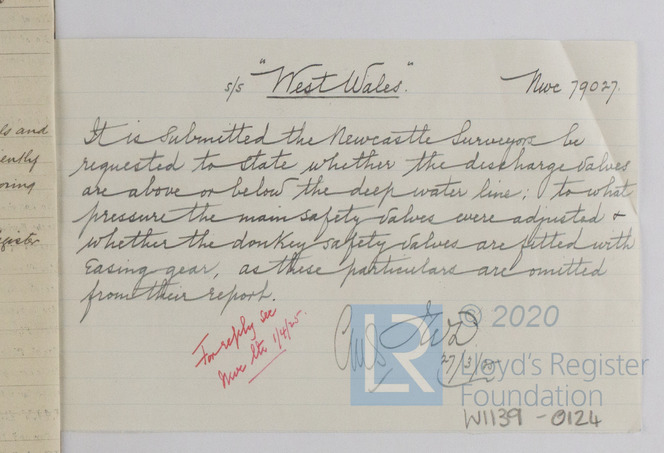 s/s "West Wales". Nwc 79027.
It is submitted the Newcastle Surveyors be
requested to state whether the discharge valves
are above or below the deep water line; to what
pressure the main safety valves were adjusted &
whether the donkey safety valves are fitted with
easing gear, as these particulars are omitted
from their report.
For reply see
Nwc ltr 1/4/25.
27/3/25
LR
© 2020
Lloyd's Register
Foundation
W1139-0124
ls and
iently